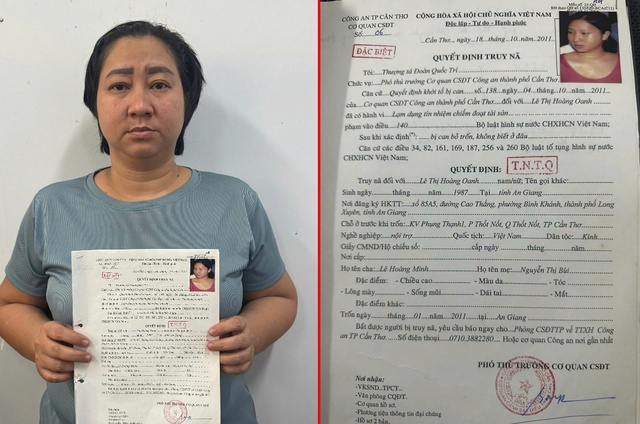 CÔNG AN TP CẦN THƠ
CƠ QUAN CSĐT
Số: 06
ĐẶC BIỆT
CỘNG HÒA XÃ HỘI CHỦ NGHĨA VIỆT NAM
Độc lập - Tự do - Hạnh phúc
Cần Thơ, ngày 18 tháng 10 năm 2011
QUYẾT ĐỊNH TRUY NÃ
Tôi: Thượng tá Đoàn Quốc Trí
Chức vụ: Phó thủ trưởng Cơ quan CSĐT Công an thành phố Cần Thơ
Căn cứ Quyết định khởi tố bị can số 138 ngày 04 tháng 10 năm 2011
của Cơ quan CSĐT Công an thành phố Cần Thơ đối với Lê Thị Hoàng Oanh
đã có hành vi Lạm dụng tín nhiệm chiếm đoạt tài sản
phạm vào điều 140 Bộ luật hình sự nước CHXHCN Việt Nam;
Sau khi xác định bị can bỏ trốn, không biết ở đâu
Căn cứ các điều 34, 82, 161, 169, 187, 256 và 260 Bộ luật tố tụng hình sự nước
CHXHCN Việt Nam;
QUYẾT ĐỊNH:
T.N.T.Q
Truy nã đối với Lê Thị Hoàng Oanh nam/nữ; Tên gọi khác:
Sinh ngày tháng năm 1987 Tại tỉnh An Giang
Nơi đăng ký HKTT: số 85A5, đường Cao Thắng, phường Bình Khánh, thành phố Long
Xuyên, tỉnh An Giang
Chỗ ở trước khi trốn: KV Phụng Thạnh1, P Thốt Nốt, Q Thốt Nốt, TP Cần Thơ
Nghề nghiệp: nội trợ Quốc tịch: Việt Nam Dân tộc: Kinh
Giấy CMND/Hộ chiếu số: cấp ngày tháng năm
Nơi cấp
Họ tên cha: Lê Hoàng Minh Họ tên mẹ: Nguyễn Thị Búi
Đặc điểm: - Chiều cao - Màu da - Tóc
- Lông mày - Sống mũi - Dái tai - Mắt
Đặc điểm khác:
Trốn ngày tháng 01 năm 2011 tại An Giang
Bắt được người bị truy nã, yêu cầu báo ngay cho Phòng CSĐTTP về TTXH Công
an TP Cần Thơ Số điện thoại 0710.3882280 Hoặc cơ quan Công an nơi gần nhất
PHÓ THỦ TRƯỞNG CƠ QUAN CSĐT
Nơi nhận:
-VKSND..TPCT..
-Văn phòng CQĐT.
-Cơ quan hồ sơ.
-Phương tiện thông tin đại chúng
-Hồ sơ 2 bản.